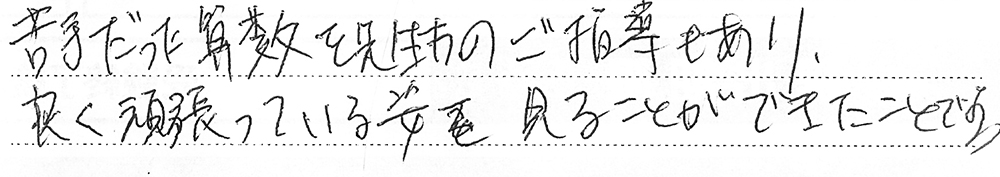 苦手だった算数を先生方のご指導もあり、
良く頑張っている姿を見ることができたことです。